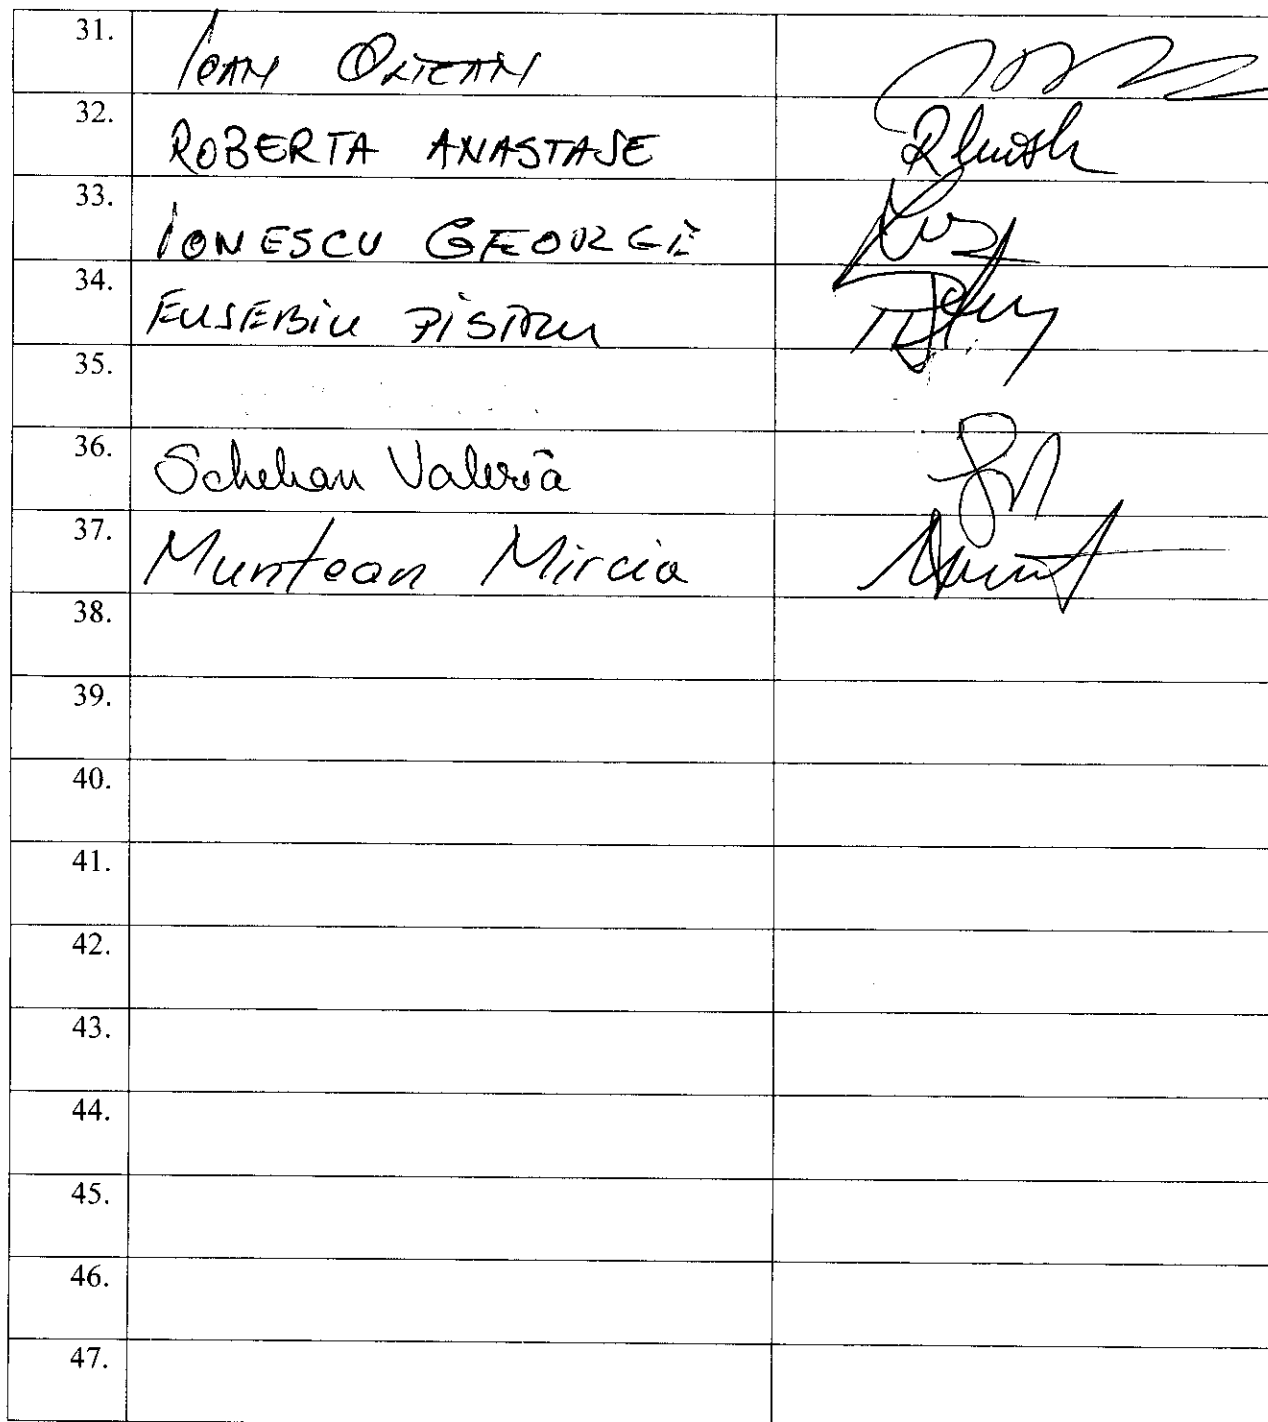 31. IOAN OLTEAN
32. ROBERTA ANASTASE
33. IONESCU GEORGE
34. EUSEBIU PISTRU
35.
36. Schelean Valeria
37. Muntean Mircia
38.
39.
40.
41.
42.
43.
44.
45.
46.
47.